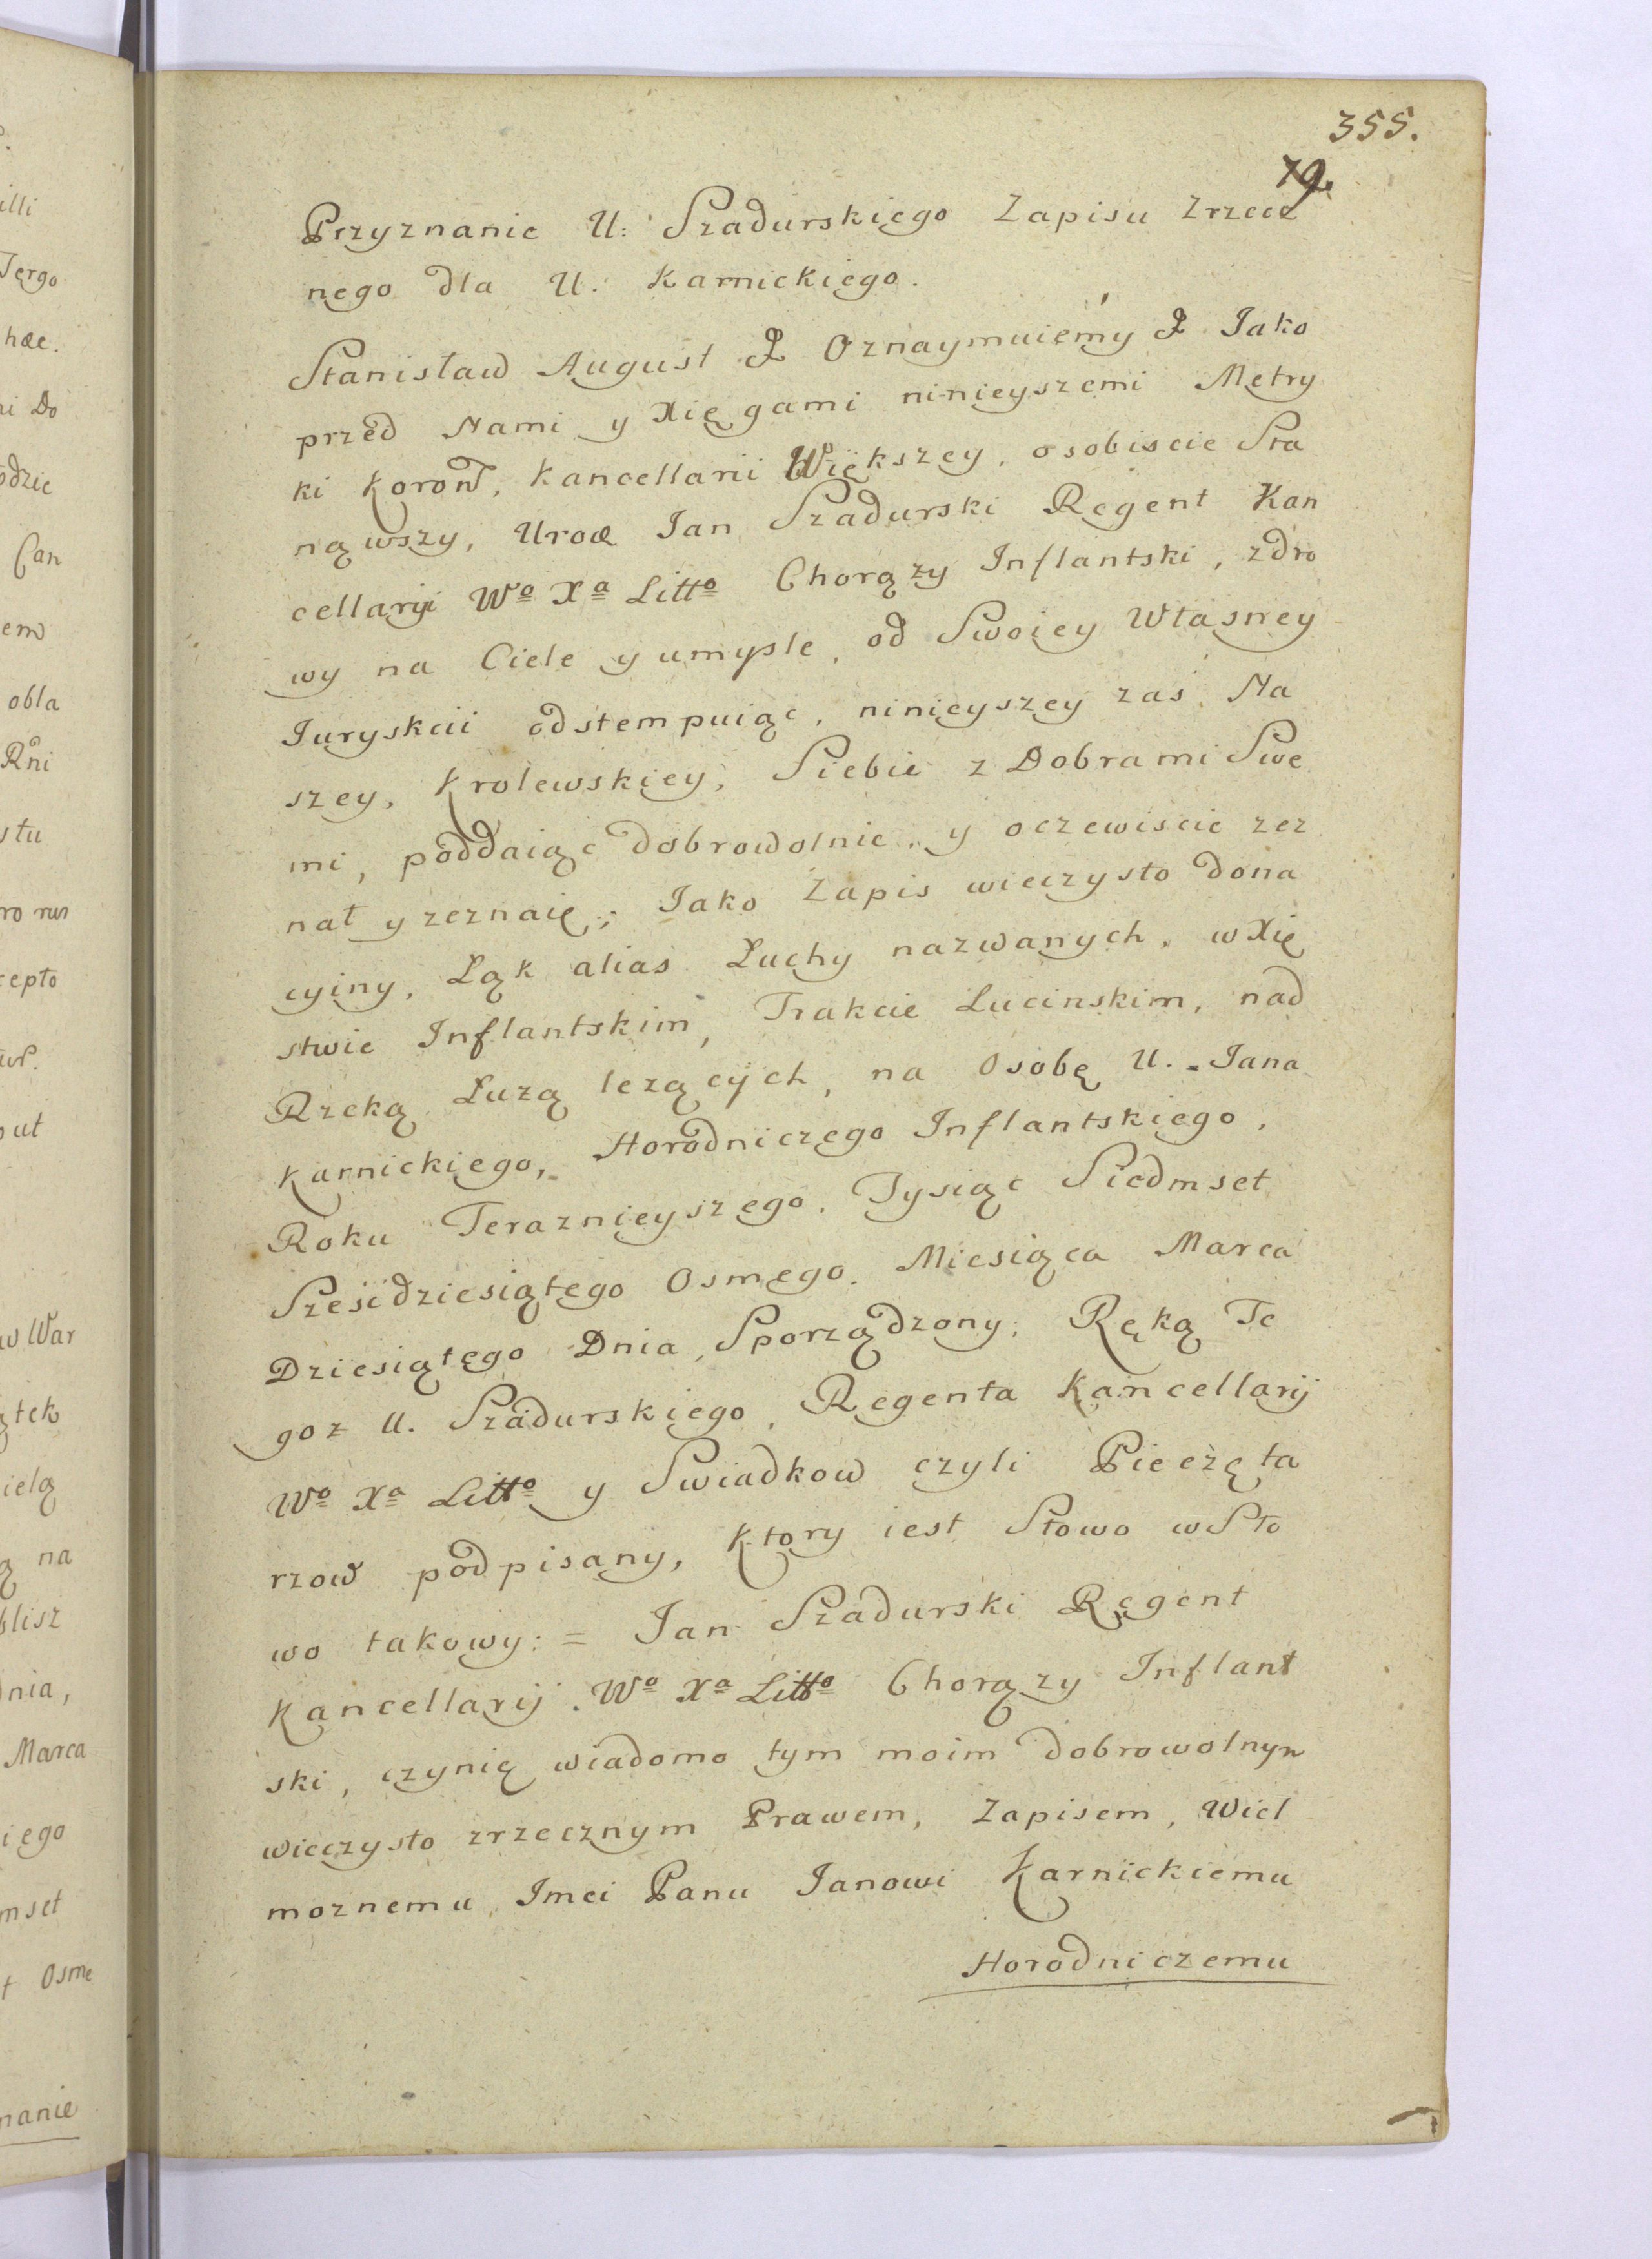 355.
79.
Przyznanie U: Szadurskiego Zapisu Zrzecz
nego dla U. Karnickiego.
Stanisław August & Oznaymuiemy & Jako
przed Nami y Xięgami ninieyszemi Metry
ki Koron, Kancellarii Większey, osobiscie Sta
nąwszy, Urod Jan Szadurski Regent Kan
cellaryi Wº Xª Littº Chorązy Inflantski, zdro
wy na Ciele y umysle, od Swoiey Własney
Juryskcii odstempuiąc, ninieyszey zaś Na
szey, Krolewskiey, Siebie z Dobrami Swe
mi, poddaiąc dobrowolnie, y oczewiscie zez
nał y zeznaie; Jako Zapis wieczysto dona
cyiny, Łąk alias Łuchy nazwanych, w Xię
stwie Inflantskim, Trakcie Lucinskim, nad
Rzeką Łuzą lezących, na Osobę U. Jana
Karnickiego, Horodniczego Inflantskiego,
Roku Teraznieyszego, Tysiąc Siedmset
Szesidziesiątego Osmego, Miesiąca Marca
Dziesiątego Dnia, Sporządzony; Ręką Te
goz U. Szadurskiego, Regenta Kancellarij
Wº Xª Littº y Swiadkow czyli Pieczęta
rzow podpisany, Ktory iest Słowo w Sło
wo takowy: = Jan Szadurski Regent
Kancellarij Wº Xª Littº Chorązy Inflant
ski, czynię wiadomo tym moim dobrowolnym
wieczysto zrzecznym Prawem, Zapisem, Wiel
moznemu Imci Panu Janowi Karnickiemu
Horodniczemu